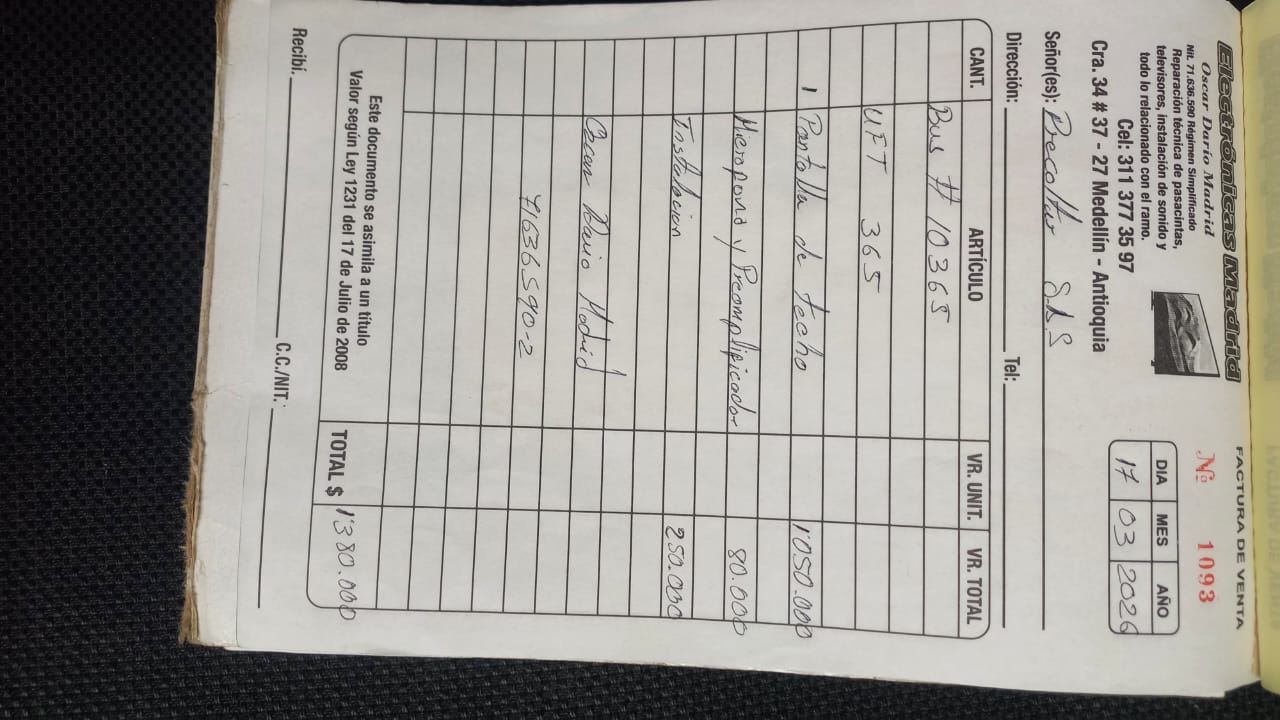 Electrónicas Madrid
Oscar Dario Madrid
Nit. 71.636.590 Régimen Simplificado
Reparación técnica de pasacintas,
televisores, instalación de sonido y
todo lo relacionado con el ramo.
Cel: 311 377 35 97
Cra. 34 # 37 - 27 Medellín - Antioquia
FACTURA DE VENTA
Nº 1093
DIA MES AÑO
17 03 2026
Señor(es): S.A.S
Dirección: Tel:
CANT. ARTÍCULO VR. UNIT. VR. TOTAL
Bus # 10365
UFT 365
1 Pantalla de techo 1'050.000
Microfono y Preamplificador 80.000
Instalacion 250.000
Oscar Dario Madrid
71636590-2
Este documento se asimila a un título
Valor según Ley 1231 del 17 de Julio de 2008
TOTAL $ 1'380.000
Recibí. C.C./NIT.